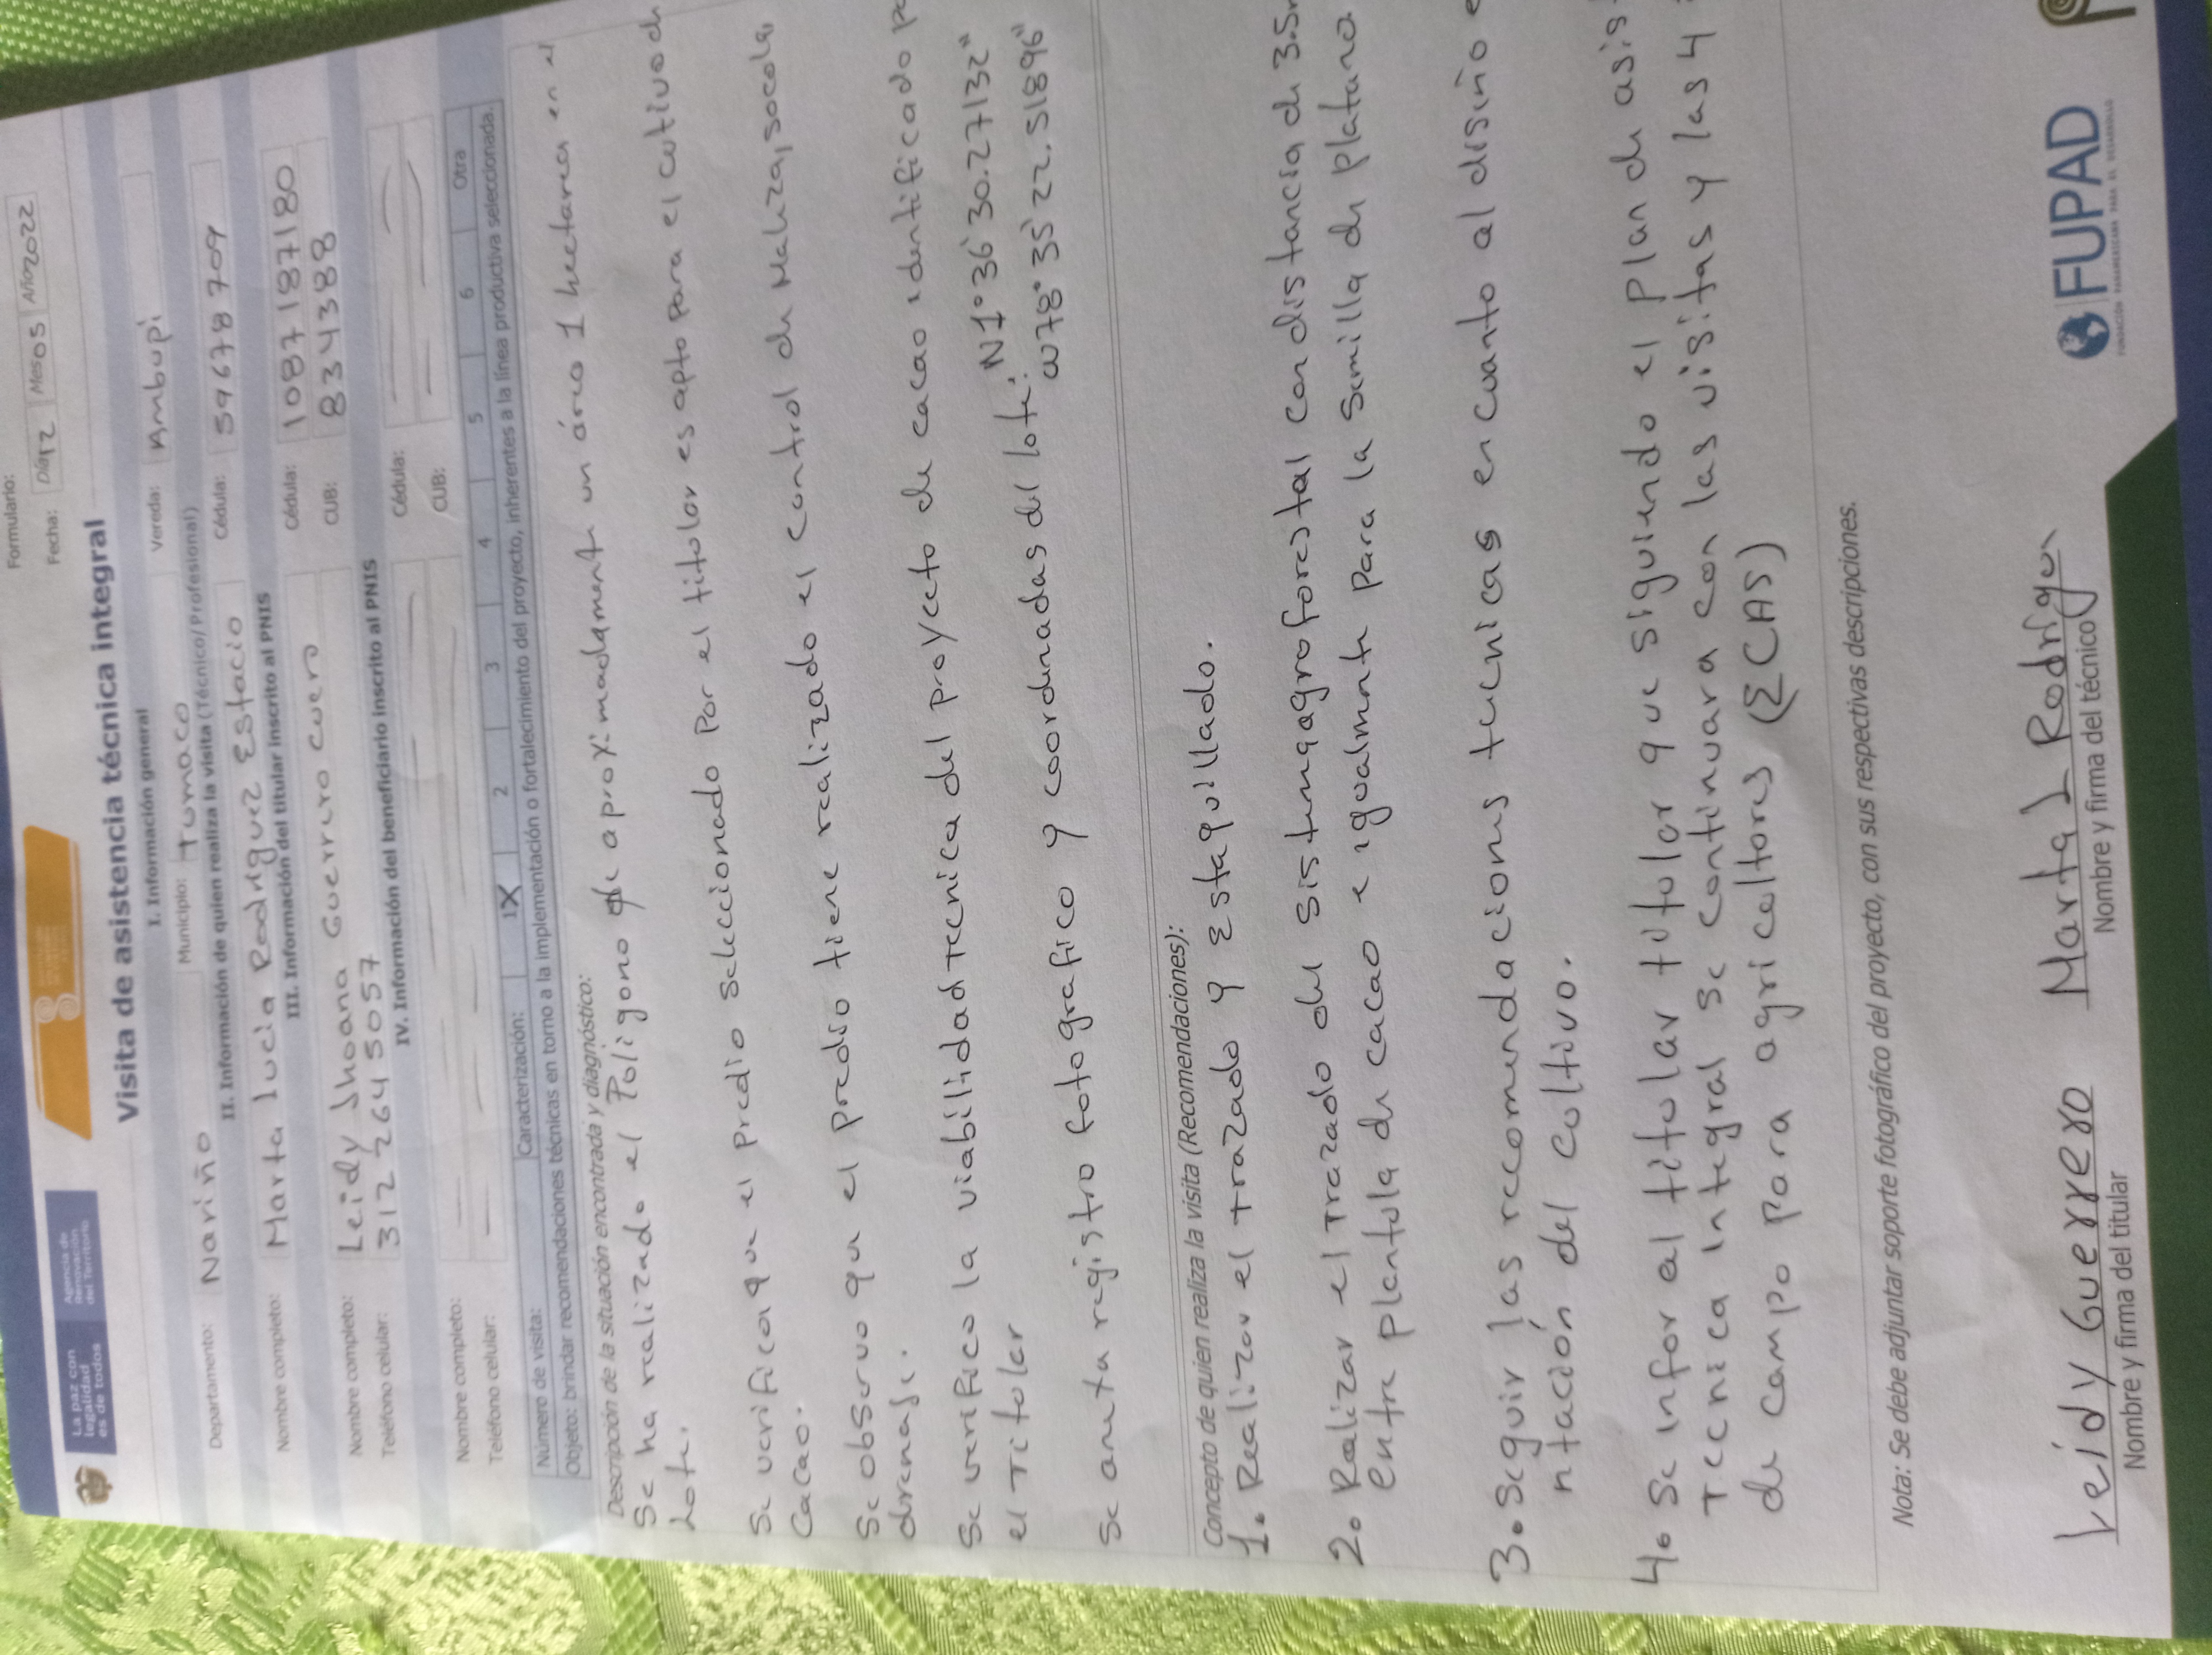 Formulario:
Fecha: Día12 Mes05 Año2022
La paz con
legalidad
es de todos
Agencia de
Renovación
del Territorio
Visita de asistencia técnica integral
I. Información general
Departamento: Nariño Municipio: Tumaco Vereda: Ambupi
II. Información de quien realiza la visita (Técnico/Profesional)
Nombre completo: Marta lucia Rodriguez Estacio Cédula: 59678709
III. Información del titular inscrito al PNIS
Nombre completo: Leidy Jhoana Guerrero Cuero Cédula: 1087187180
Teléfono celular: 3122645057 CUB: 834388
IV. Información del beneficiario inscrito al PNIS
Nombre completo: Cédula:
Teléfono celular: CUB:
Número de visita: Caracterización: 1X 2 3 4 5 6 Otra
Objeto: brindar recomendaciones técnicas en torno a la implementación o fortalecimiento del proyecto, inherentes a la línea productiva seleccionada.
Descripción de la situación encontrada y diagnóstico:
Se ha realizado el Poligono de aproximadamente un área 1 hectarea en el
Lote.
Se verifico que el predio seleccionado por el titular es apto para el cutivo de
Cacao.
Se observo que el predio tiene realizado el control de Maleza, socola,
drenaje.
Se verifico la viabilidad tecnica del proyecto de cacao identificado po
el titular
Se anexa registro fotografico y coordenadas del lote: N1°36'30.27132"
W78°35'22.51896"
Concepto de quien realiza la visita (Recomendaciones):
1. Realizar el trazado y Estaquillado.
2. Realizar el trazado del sistemaagroforestal con distancia de 3.5m
entre plantula de cacao e igualmente para la Semilla de platano
3. Seguir las recomendaciones tecnicas en cuanto al diseño e
ntación del cultivo.
4. Se infor al titular tutolar que siguiendo el plan de asis
Tecnica integral se continuara con las visitas y las 4
de campo para agricultores (ECAS)
Nota: Se debe adjuntar soporte fotográfico del proyecto, con sus respectivas descripciones.
Leidy Guerrero Marta L Rodriguez
Nombre y firma del titular Nombre y firma del técnico
FUPAD
FUNDACIÓN PANAMERICANA PARA EL DESARROLLO